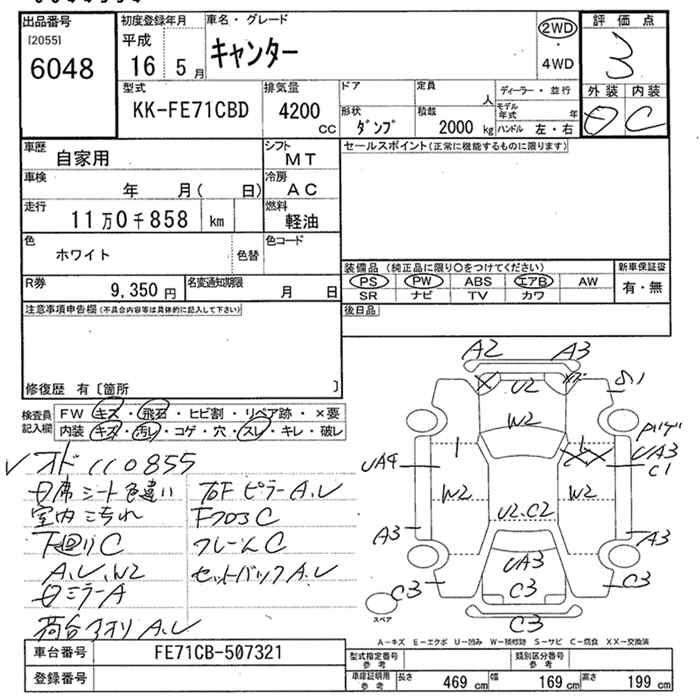 出品番号 初度登録年月 車名・グレード 評価点
[2055] 平成 キャンター 2WD 3
6048 16 5月 ・4WD
型式 排気量 ドア 定員 ディーラー・並行 外装 内装
KK-FE71CBD 4200cc 人 モデル年式 年 C
形状 ダンプ 積載 2000kg ハンドル 左・右
車歴 自家用 シフト MT セールスポイント(正常に機能するものに限ります)
車検 年 月( 日) 冷房 AC
走行 11万0千858 km 燃料 軽油
色 ホワイト 色替 色コード
装備品(純正品に限り○をつけてください) 新車保証書
R券 9,350円 名変通知期限 月 日 PS PW ABS エアB AW 有・無
SR ナビ TV カワ
注意事項申告欄(不具合内容等は具体的に記入して下さい) 後日品
修復歴 有〔箇所 〕
検査員記入欄 FW キズ・飛石・ヒビ割・リペア跡・×要
内装 キズ・汚レ・コゲ・穴・スレ・キレ・破レ
A2 A3
U2
W2
UA4 UA3
C1
W2 U2.C2 W2
A3 A3
UA3
C3 C3 C3
C3
スペア
✓メーター 110855
席シート色違い ピラーA.U
室内こぢれ FフロアC
下廻りC フレームC
A.U.W2 セットバックA.U
ミラーA
荷台アオリA.U
A-キズ E-エクボ U-凹み W-補修跡 S-サビ C-腐食 XX-交換済
車台番号 FE71CB-507321 型式指定番号 参考 類別区分番号 参考
登録番号 車庫証明用 参考 長さ 469cm 幅 169cm 高さ 199cm